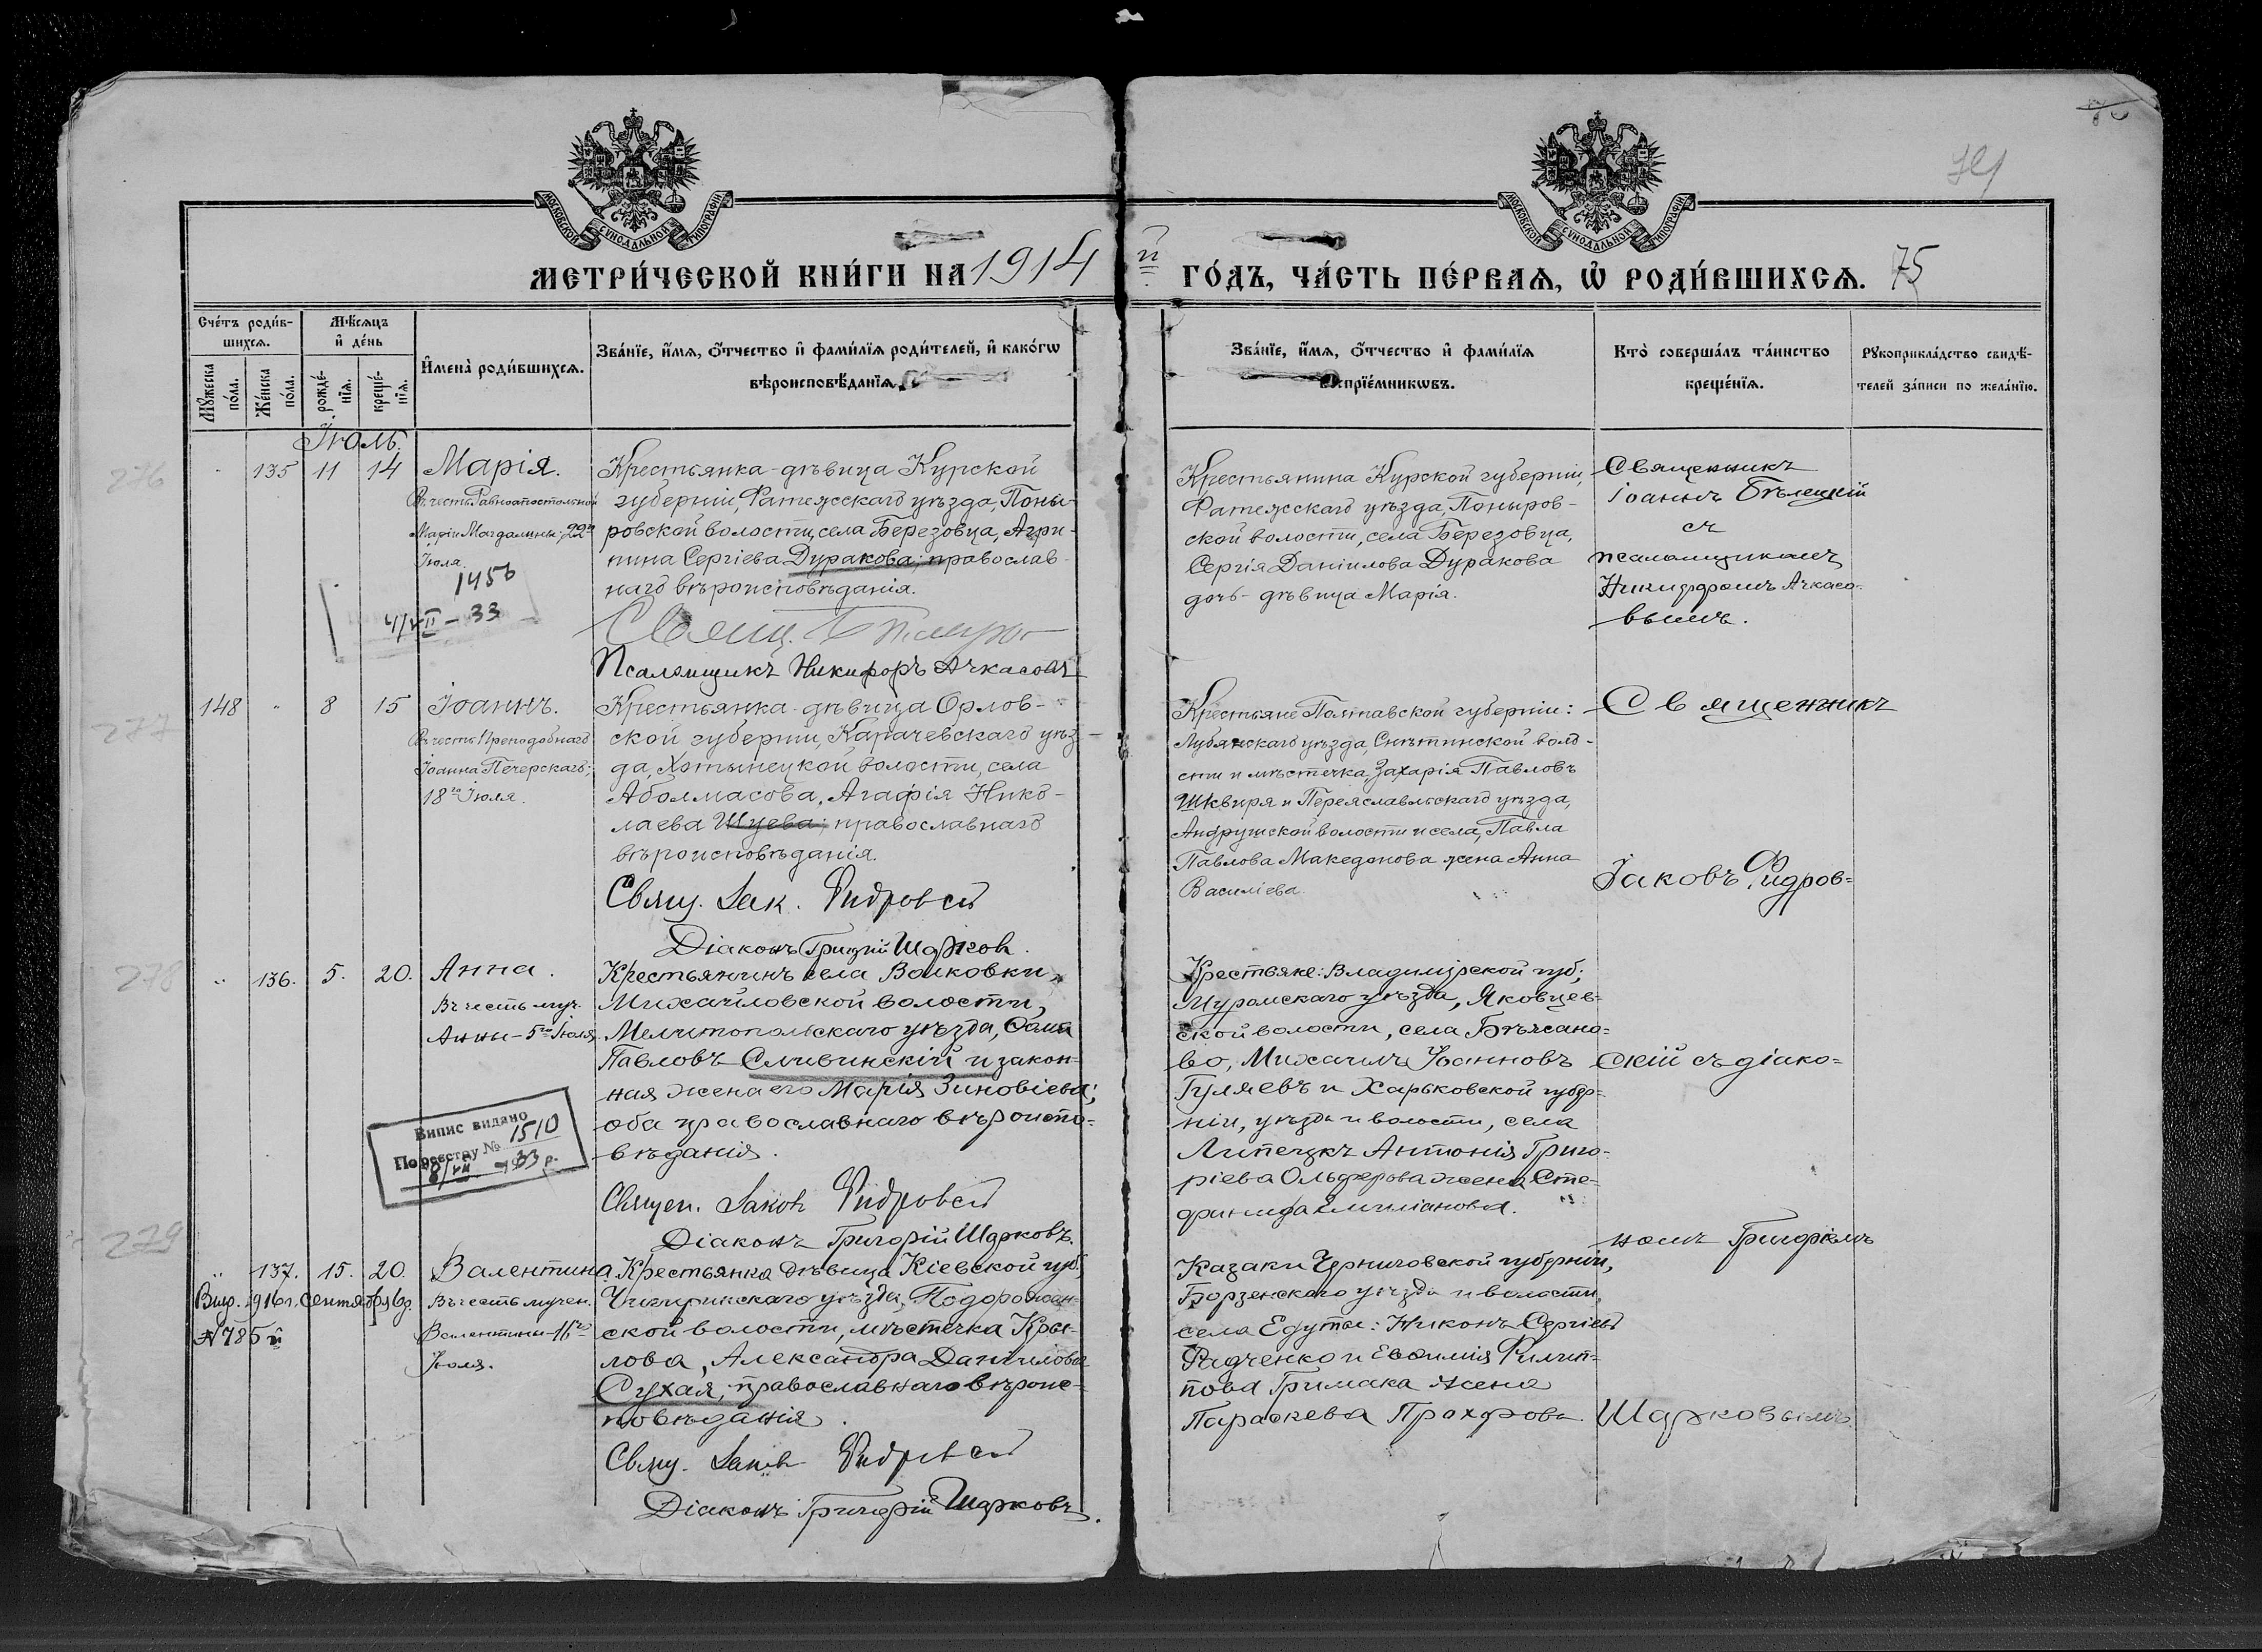 75
МОСКОВСКОЙ СѴНОДАЛЬНОЙ ТИПОГРАФІИ
МОСКОВСКОЙ СѴНОДАЛЬНОЙ ТИПОГРАФІИ
МЕТРИ́ЧЕСКОЙ КНИ́ГИ НА 1914 й ГО́ДЪ, ЧА́СТЬ ПЕ́РВАѦ, Ѡ РОДИ́ВШИХСѦ.
Сче́тъ роди́в-
шихсѧ.
Мѣ́сѧцъ
и҆ де́нь
Мꙋ́жеска по́ла.
Же́нска по́ла.
рожде́-нїѧ.
креще́-нїѧ.
И҆мена̀ роди́вшихсѧ.
Зва́нїе, и҆́мѧ, ѻ҆́тчество и҆ фами́лїѧ роди́телей, и҆ како́гѡ
вѣроисповѣ́данїѧ.
Зва́нїе, и҆́мѧ, ѻ҆́тчество и҆ фами́лїѧ
воспрїе́мникѡвъ.
Кто̀ соверша́лъ та́инство
креще́нїѧ.
Рꙋкоприкла́дство свидѣ́-
телей за́писи по жела́нїю.
Іюль.
276
135 11 14
Марія.
Въ честь Равноапостольной
Маріи Магдалины; 22го
Іюля.
1456
4/VII - 33
Крестьянка-дѣвица Курской
губерніи, Фатежскаго уѣзда, Поны-
ровской волости, села Березовца, Агри-
пина Сергіева Дуракова; православ-
наго вѣроисповѣданія.
Псаломщикъ Никифоръ Ачкасовъ
Крестьянина Курской губерніи,
Фатежскаго уѣзда, Поныров-
ской волости, села Березовца,
Сергія Даніилова Дуракова
дочь-дѣвица Марія.
Священникъ
Іоаннъ Бѣлецкій
съ
псаломщикомъ
Никифоромъ Ачкасо-
вымъ.
277
148 " 8 15
Іоаннъ.
Въ честь Преподобнаго
Іоанна Печерскаго;
18го Іюля.
Крестьянка-дѣвица Орлов-
ской губерніи, Карачевскаго уѣз-
да, Хотынецкой волости, села
Аболмасова, Агафія Нико-
лаева Шуева; православнаго
вѣроисповѣданія.
Свящ. Іак. Фидровскій
Діаконъ Григрій Шарков.
Крестьяне Полтавской губерніи:
Лубянскаго уѣзда, Снѣтинской воло-
сти и мѣстечка, Захарія Павловъ
Шквиря и Переяславльскаго уѣзда,
Андрушской волости и села, Павла
Павлова Македонова жена Анна
Василіева.
Священникъ
Іаковъ Фидров=
278
" 136. 5. 20.
Анна.
Въ честь муч.
Анны - 5го Іюля.
Випис видано
По реєстру № 1510
8/VII - 33 р.
Крестьянинъ села Волковки,
Михайловской волости,
Мелитопольскаго уѣзда,
Павловъ Сливинскій и закон-
ная жена его Марія Зиновіева;
оба православнаго вѣроиспо=
вѣданія.
Священ. Іаков Фидровскій
Діаконъ Григорій Шарковъ.
Крестьяне: Владимірской губ;
Муромскаго уѣзда, Яковцев=
ской волости, села
во, Михаилъ Іоанновъ
Гуляевъ и Харьковской губер=
ніи, уѣзда и волости, села
Липецкъ Антонія Григо-
ріева Ольферова жена Сте-
фанида Емиліанова.
скій съ діако=
номъ Григоріемъ
279
" 137. 15. 20.
Выд. 1916 г. Сентября 6 д.
№ 785й
Валентина
Въ честь мучен.
Валентины - 16го
Іюля.
Крестьянка дѣвица Кіевской губ.,
Чигиринскаго уѣзда, Подорожан-
ской волости, мѣстечка Кры-
лова, Александра Даніилова
Сухая, православнаго вѣроис-
повѣданія.
Свящ. Іаков Фидровскій
Діаконъ Григорій Шарковъ.
Казаки Черниговской губерніи,
Борзенскаго уѣзда и волости,
села Едуты: Никонъ Сергіевъ
Радченко и Евѳимія Филип-
пова Гримака жена
Параскева Прохорова.
Шарковымъ.